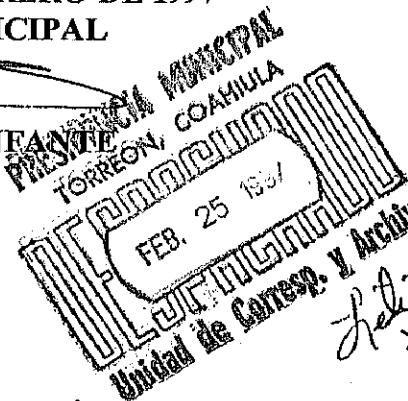 DE 1997
ICIPAL
NFANTE
PRESIDENCIA MUNICIPAL
TORREON, COAHUILA
DESPACHADO
FEB. 25 1997
Unidad de Corresp. y Archivo